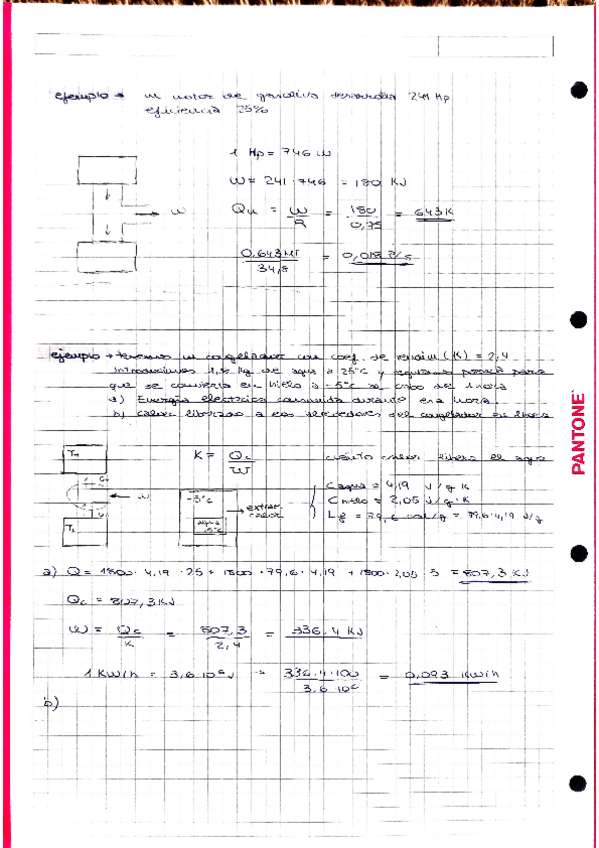 ejemplo → un motor de gasolina desarrolla 241 Hp
eficiencia 25%
1 Hp = 746 W
W = 241 · 746 = 180 KJ
W
Qu = W/R = 180/0,75 = 643 K
0,643 MJ / 34,8 = 0,018 l/s
ejemplo → tenemos un congelador con coef. de rendim (K) = 2,4
introducimos 1,8 kg de agua a 25°C y para
que se convierta en hielo a -5°C al cabo de 1 hora
a) Energía electrica consumida durante una hora
b) calor liberado a los alrededores del congelador en 1 hora
K = Qc/W
cuánto calor libera el agua
-5°C
agua
→ extraer calor
C agua = 4,19 J/g·K
C hielo = 2,05 J/g·K
Lf = 79,6 cal/g = 79,6·4,19 J/g
a) Q = 1800 · 4,19 · 25 + 1800 · 79,6 · 4,19 + 1800 · 2,05 · 5 = 807,3 KJ
Qc = 807,3 KJ
W = Qc/K = 807,3/2,4 = 336,4 KJ
1 KW/h = 3,6·10⁶ J → 336,4·100 / 3,6·10⁶ = 0,093 KW/h
b)
PANTONE